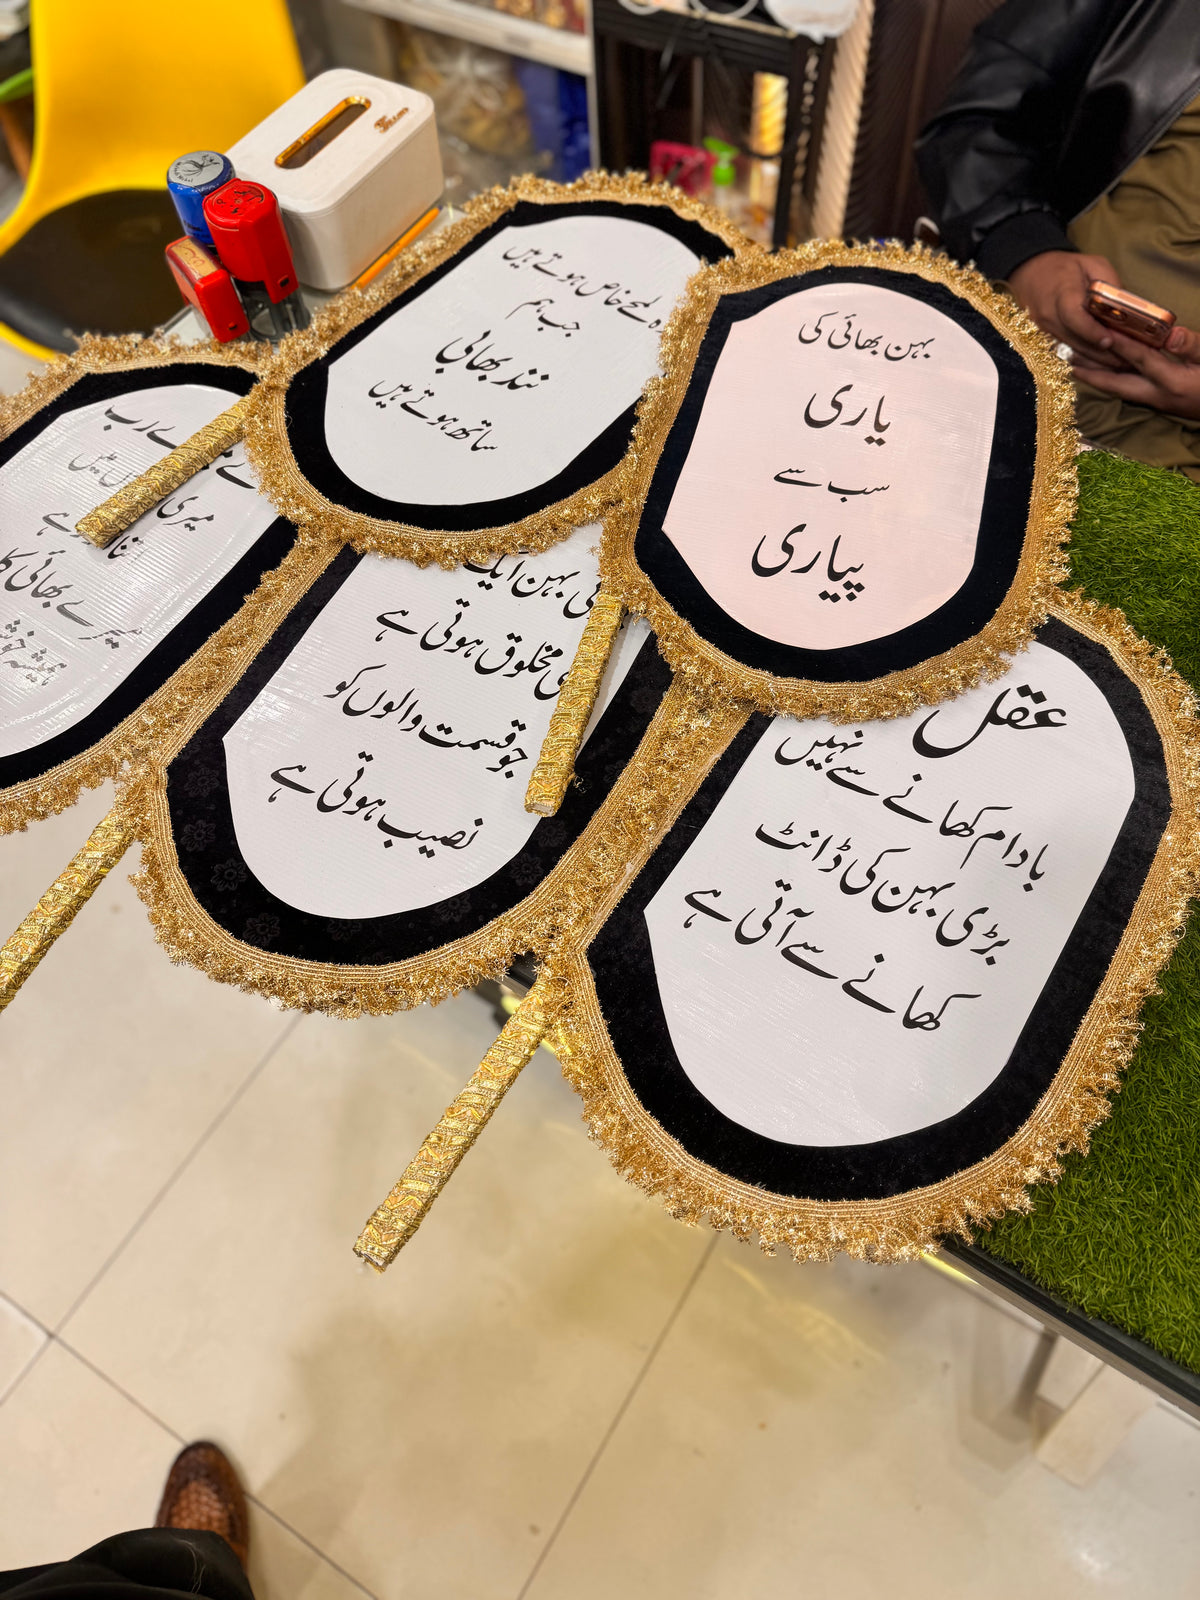 بہن بھائی کی
یاری
سب سے
پیاری
لمحے خاص ہوتے ہیں
جب ہم
نند بھابی
ساتھ ہوتے ہیں
عقل
بادام کھانے سے نہیں
بڑی بہن کی ڈانٹ
کھانے سے آتی ہے
بہن ایک
مخلوق ہوتی ہے
جو قسمت والوں کو
نصیب ہوتی ہے
رب
میری
ہے
میرے بھائی
ہمیشہ